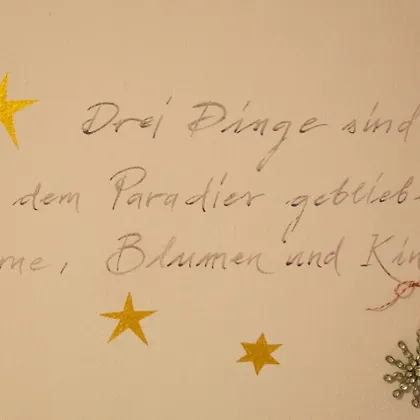 Drei Dinge sind
dem Paradies geblieb-
rne, Blumen und Kin